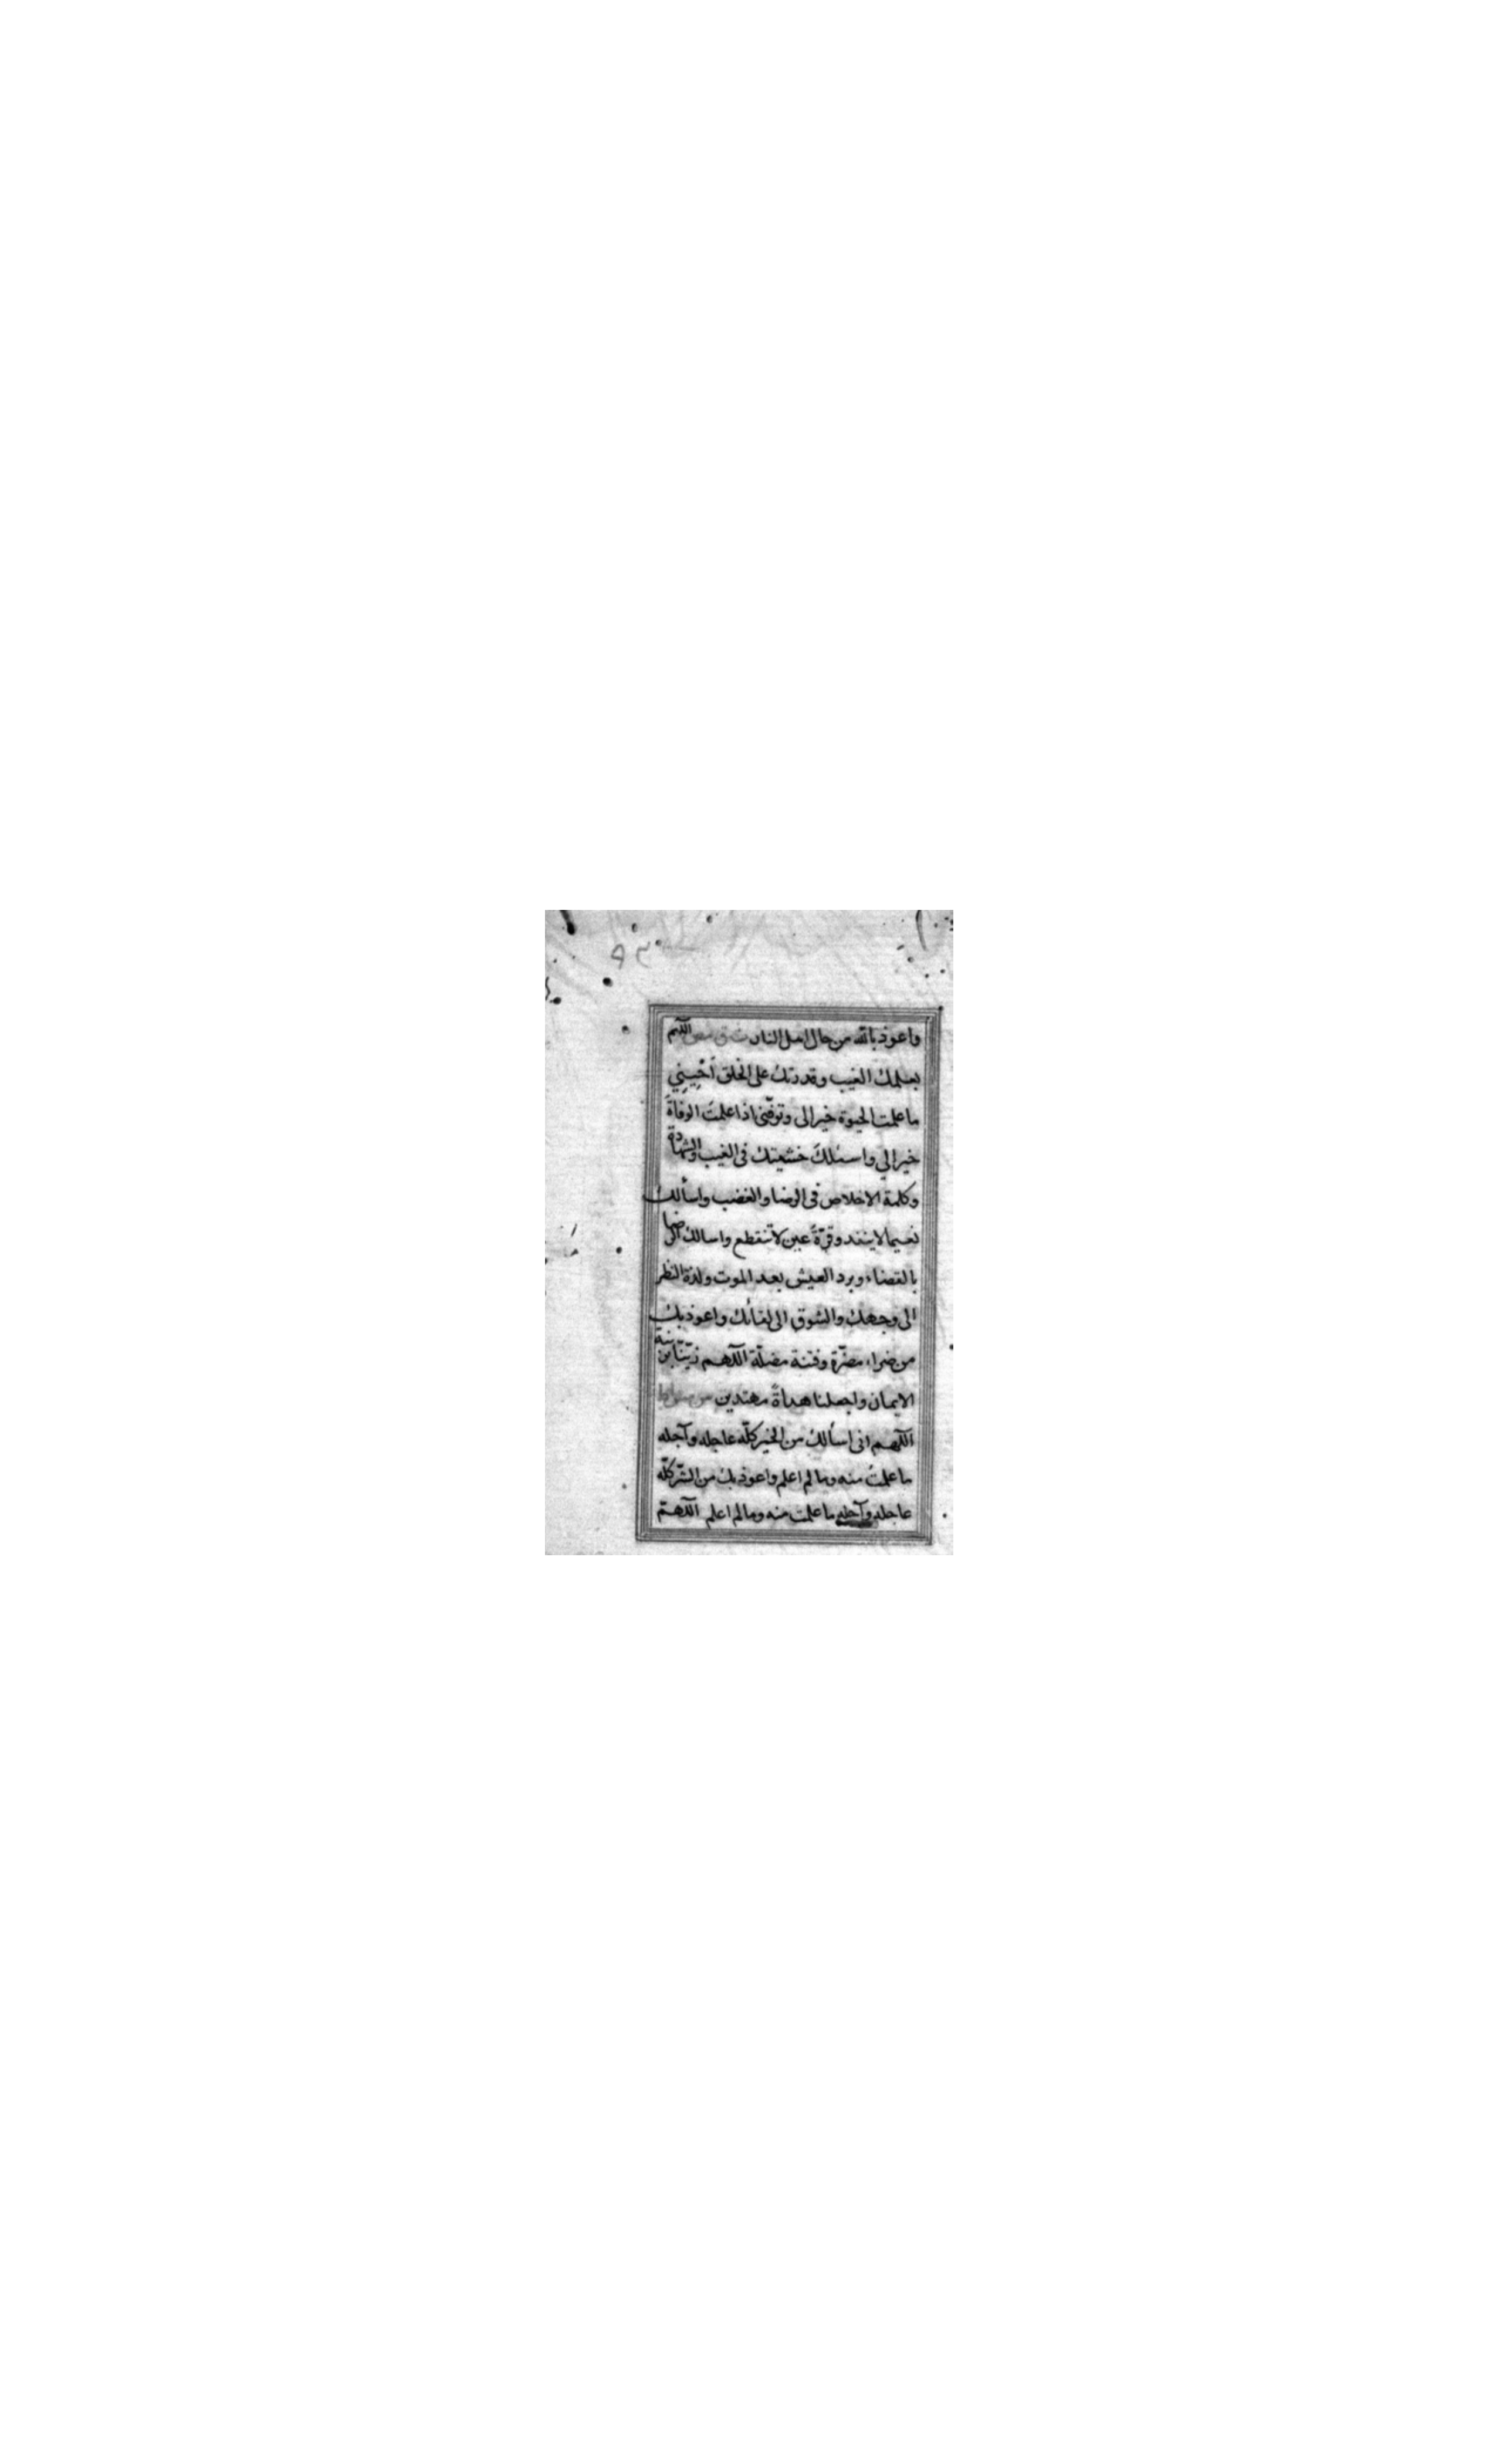 واعوذ بالله من حال اهل النار اللهم
بعلمك الغيب وقدرتك على الخلق أحْيِنِي
ما علمت الحيوة خيرا لى وتوفّنى اذا علمتَ الوفاةَ
خيرا لي واسئلكَ خشيتك فى الغيب والشهادة
وكلمة الاخلاص فى الرضا والغضب واسألك
نعيما لا ينفد وقرّةَ عين لا تنقطع واسالك الرضا
بالقضاء وبرد العيش بعد الموت ولذة النظر
الى وجهك والشوق الى لقائك واعوذ بك
من ضراء مضرّة وفتنة مضلّة اللهم زيّنّا بزينة
الايمان واجعلنا هداةً مهتدين
اللهم انى اسألك من الخير كلّه عاجله وآجله
ما علمتُ منه وما لم اعلم واعوذ بك من الشّر كلّه
عاجله وآجله ما علمت منه وما لم اعلم اللهمّ